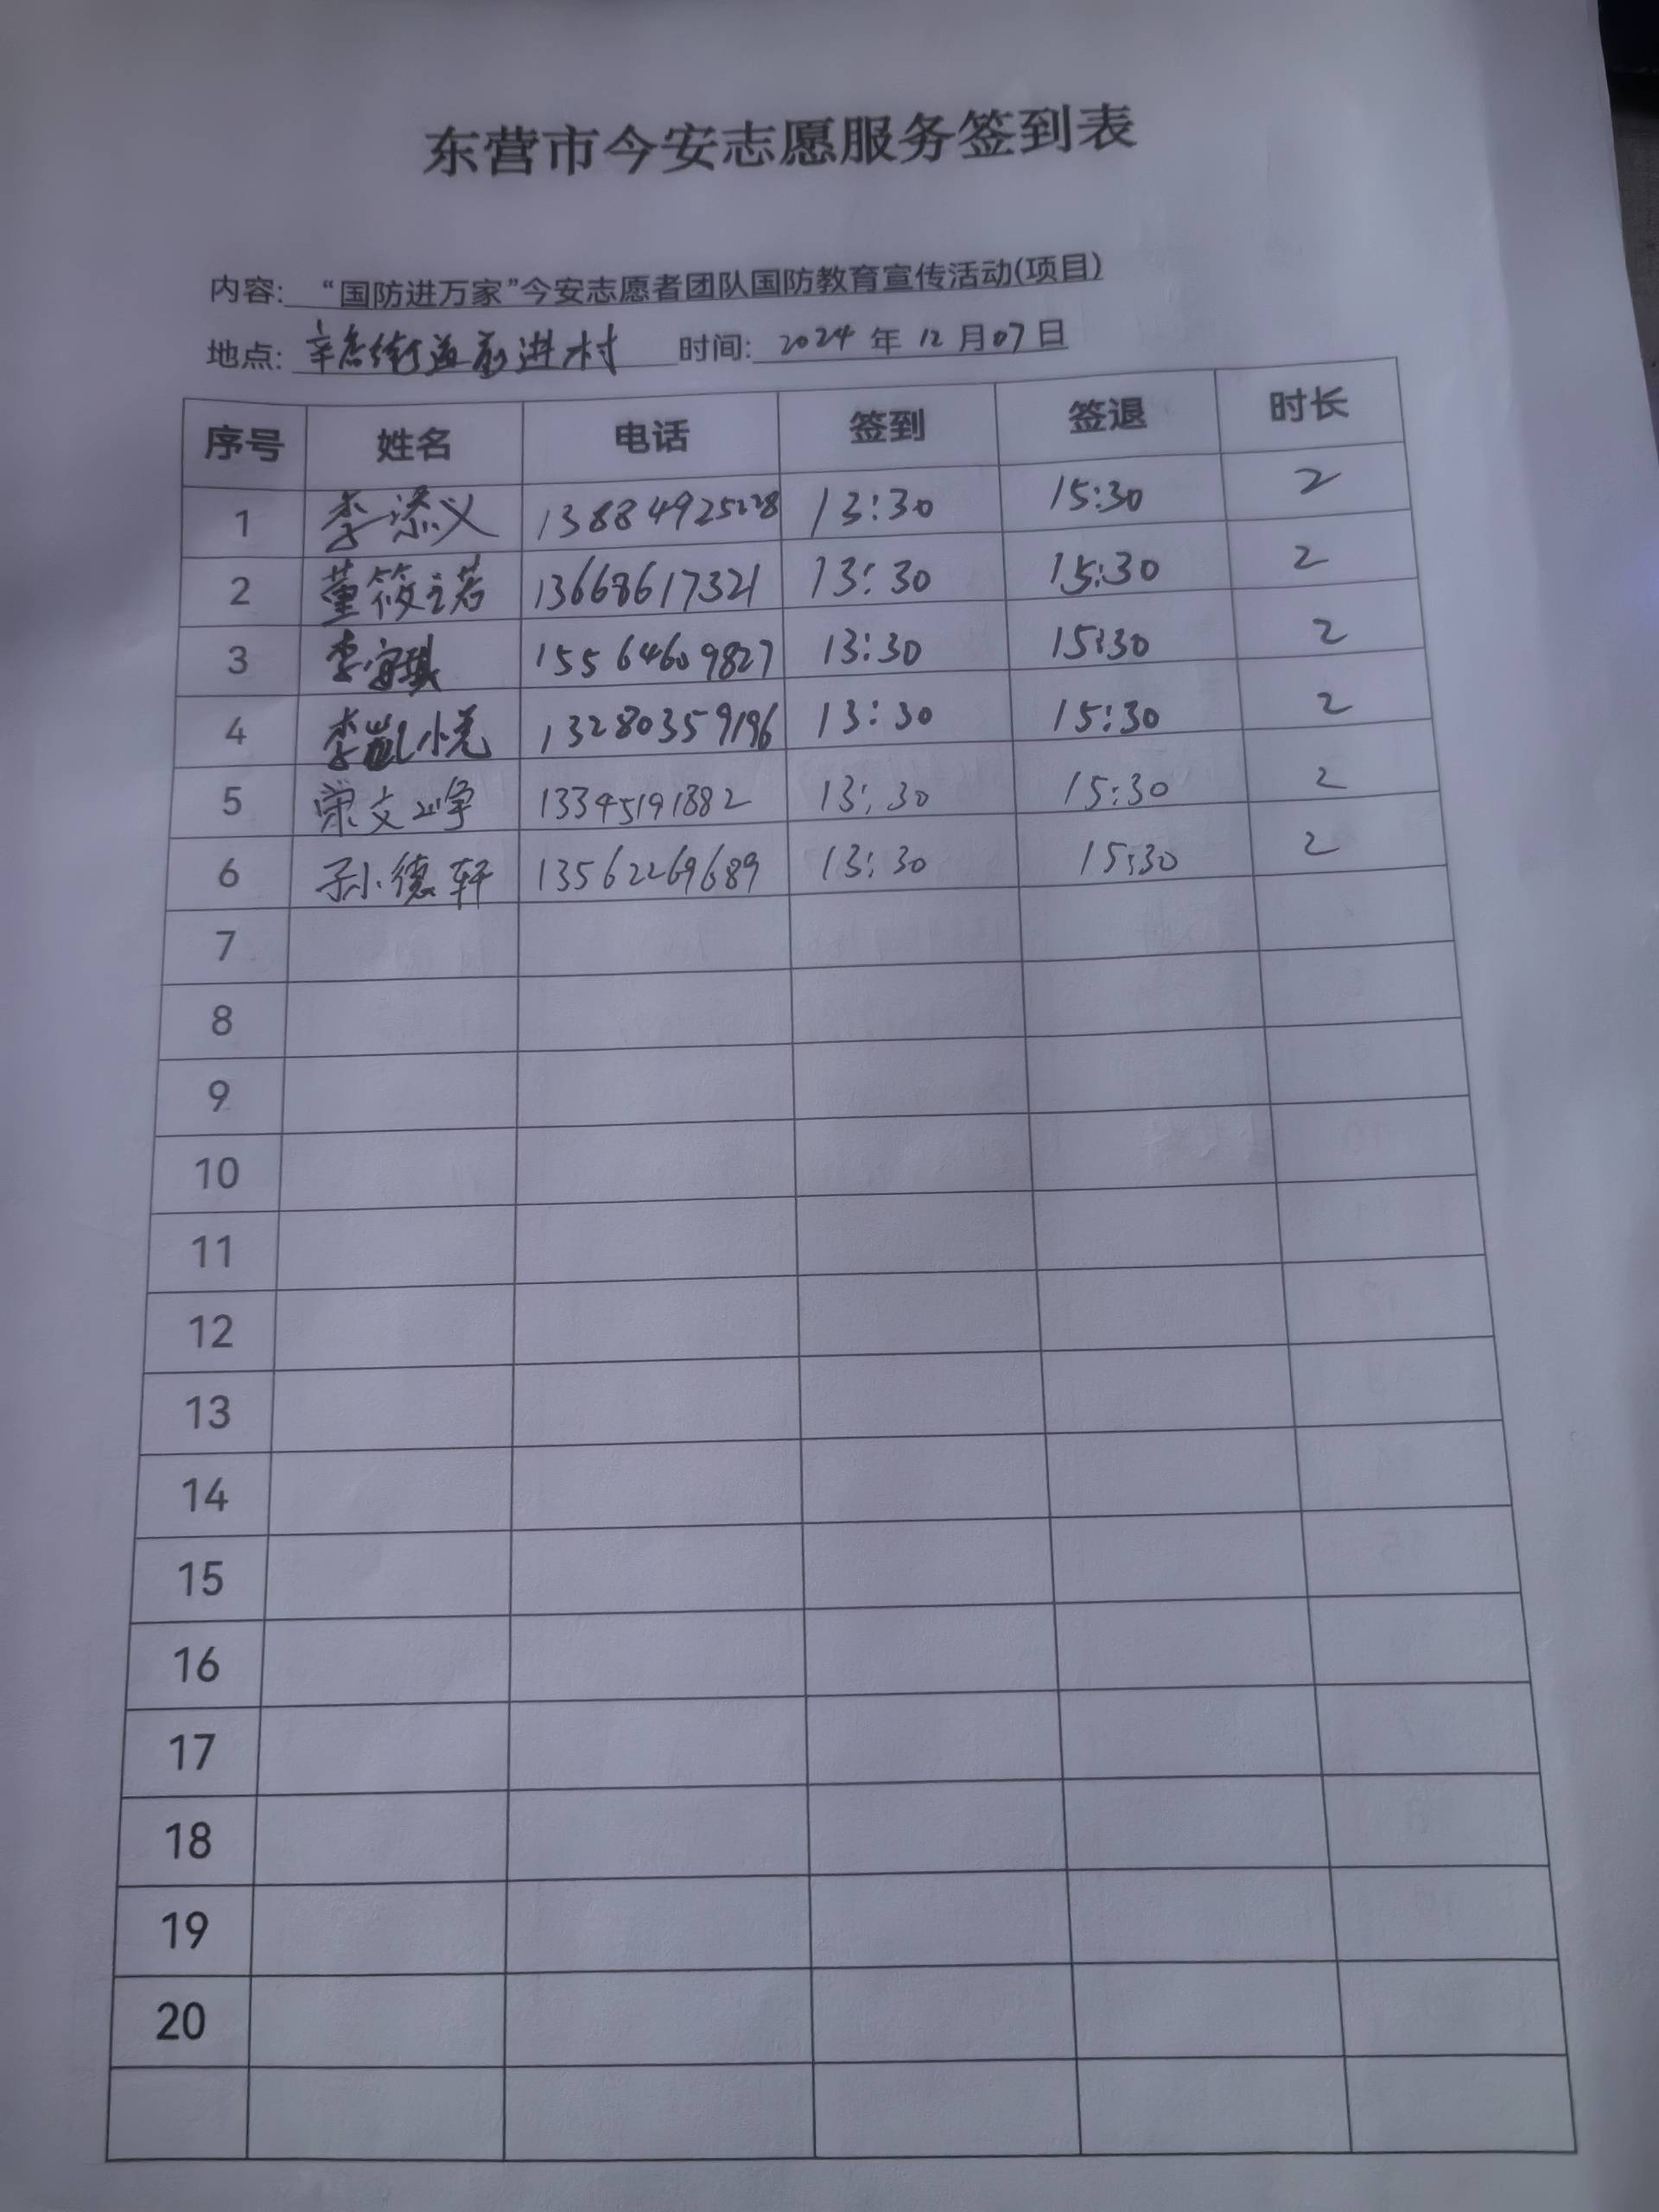 东营市今安志愿服务签到表
内容: “国防进万家”今安志愿者团队国防教育宣传活动(项目)
地点: 辛店街道前进村 时间: 2024 年 12 月 07 日
序号 姓名 电话 签到 签退 时长
1 李添义 13884925228 13:30 15:30 2
2 董筱言若 13668617321 13:30 15:30 2
3 李家琪 15564609827 13:30 15:30 2
4 李凯悦 13280359196 13:30 15:30 2
5 荣文峥 13345191882 13:30 15:30 2
6 孙德轩 13562269689 13:30 15:30 2
7
8
9
10
11
12
13
14
15
16
17
18
19
20